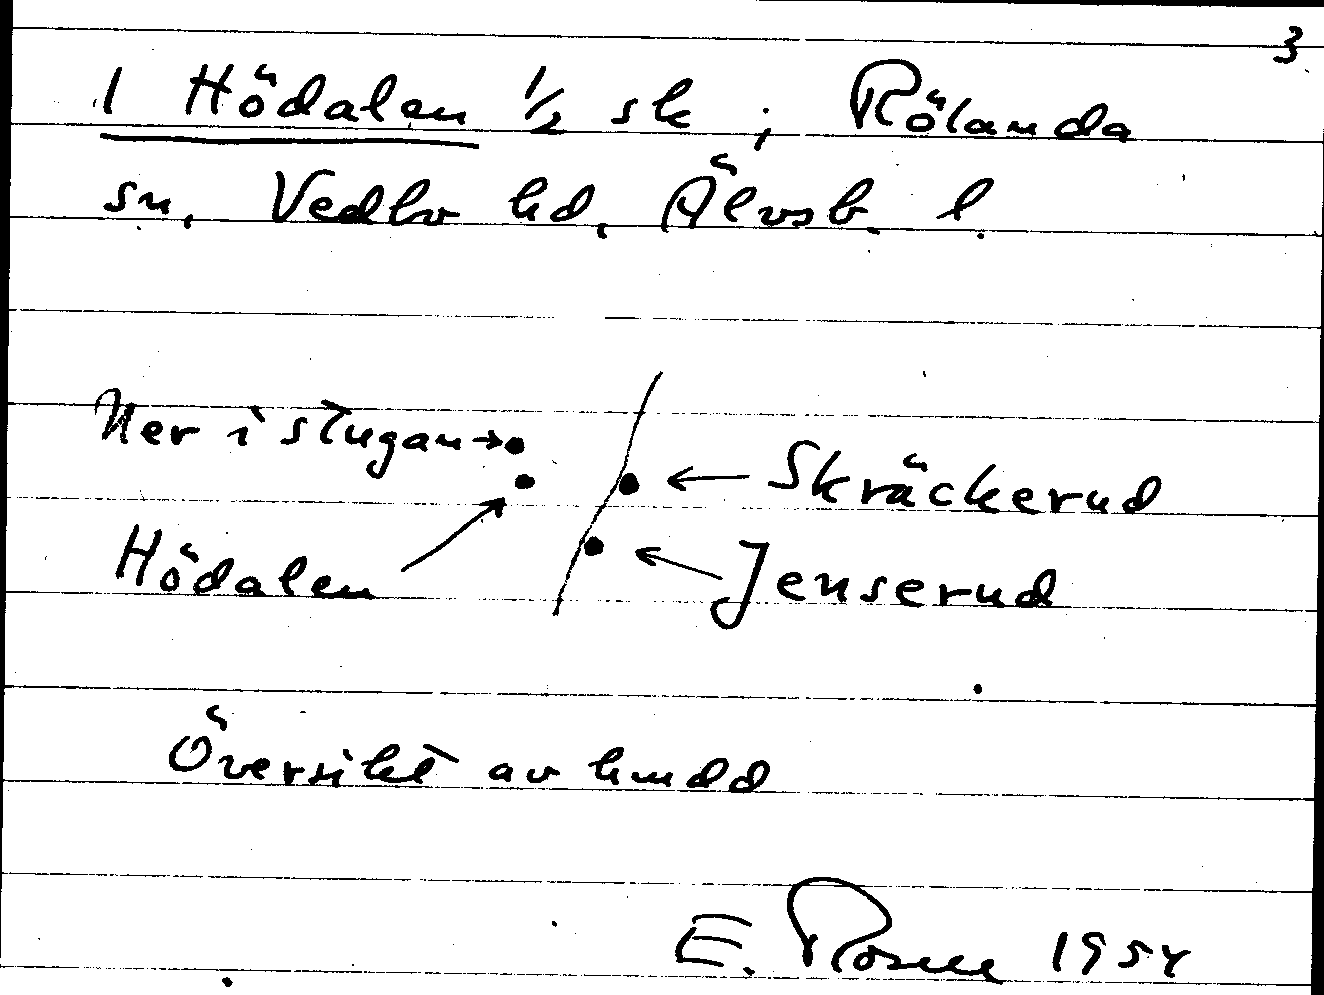 3
1 Hödalen 1/2 sk ; Rölanda
sn, Vedbo hd, Älvsb. l.
Ner i stugan → Skräckerud
Hödalen Jenserud
Översikt av hmdd
E. Rosell 1954